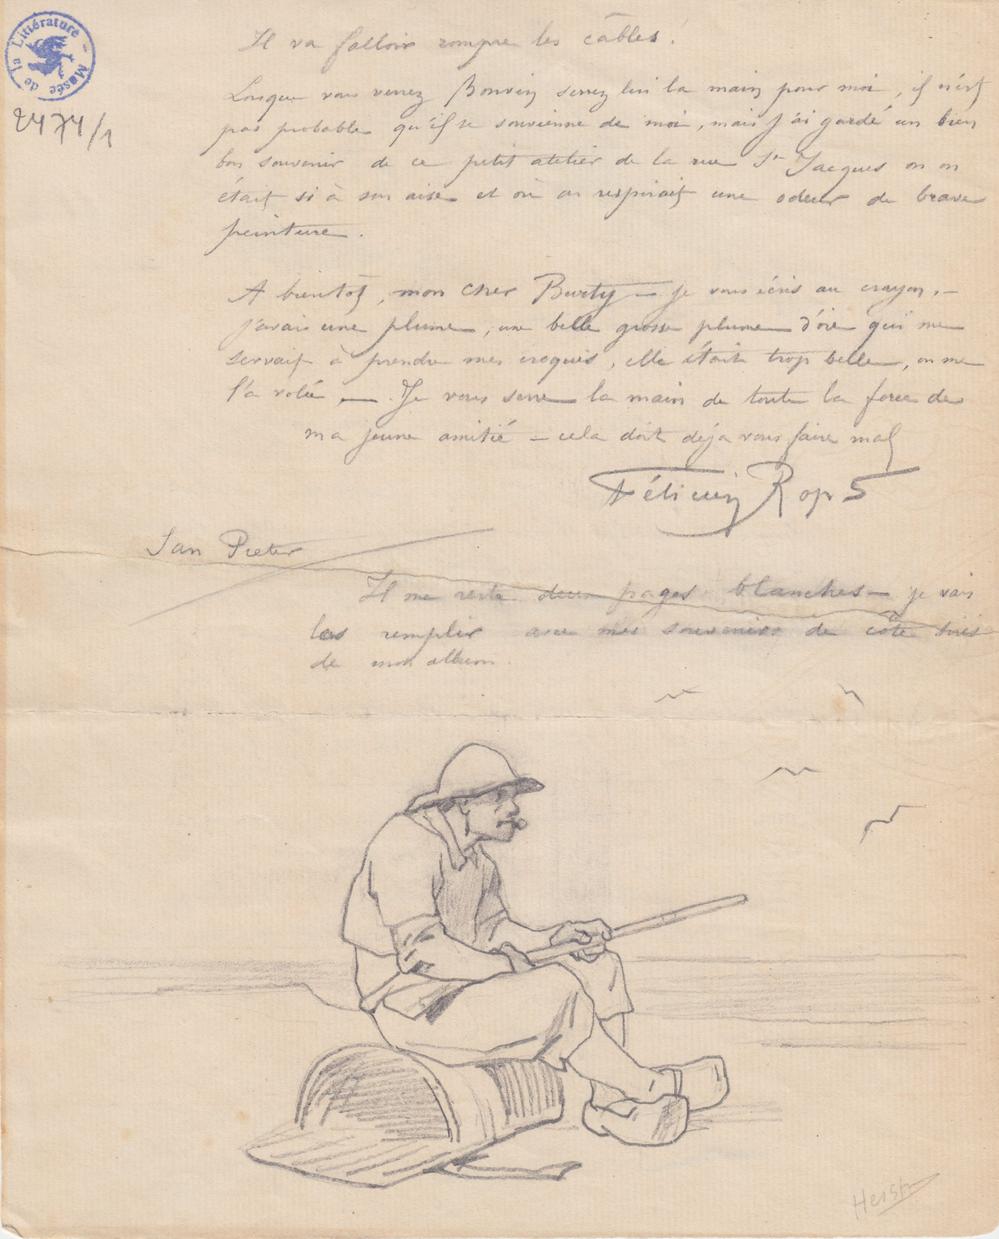 Musée de la Littérature
2474/1
Il va falloir rompre les câbles.
Lorsque vous verrez Bonvin serrez lui la main pour moi, il n'est
pas probable qu'il se souvienne de moi, mais j'ai gardé un bien
bon souvenir de ce petit atelier de la rue St Jacques où on
était si à son aise et où on respirait une odeur de brave
peinture.
A bientôt, mon cher Burty — je vous écris au crayon, —
j'avais une plume, une belle grosse plume d'oie qui me
servait à prendre mes croquis, elle était trop belle, on me
l'a volée, —. Je vous serre la main de toute la force de
ma jeune amitié — cela doit déjà vous faire mal
Félicien Rops
Jan Pieter
Il me reste deux pages blanches — je vais
les remplir avec mes souvenirs de côte tirés
de mon album.
Heist